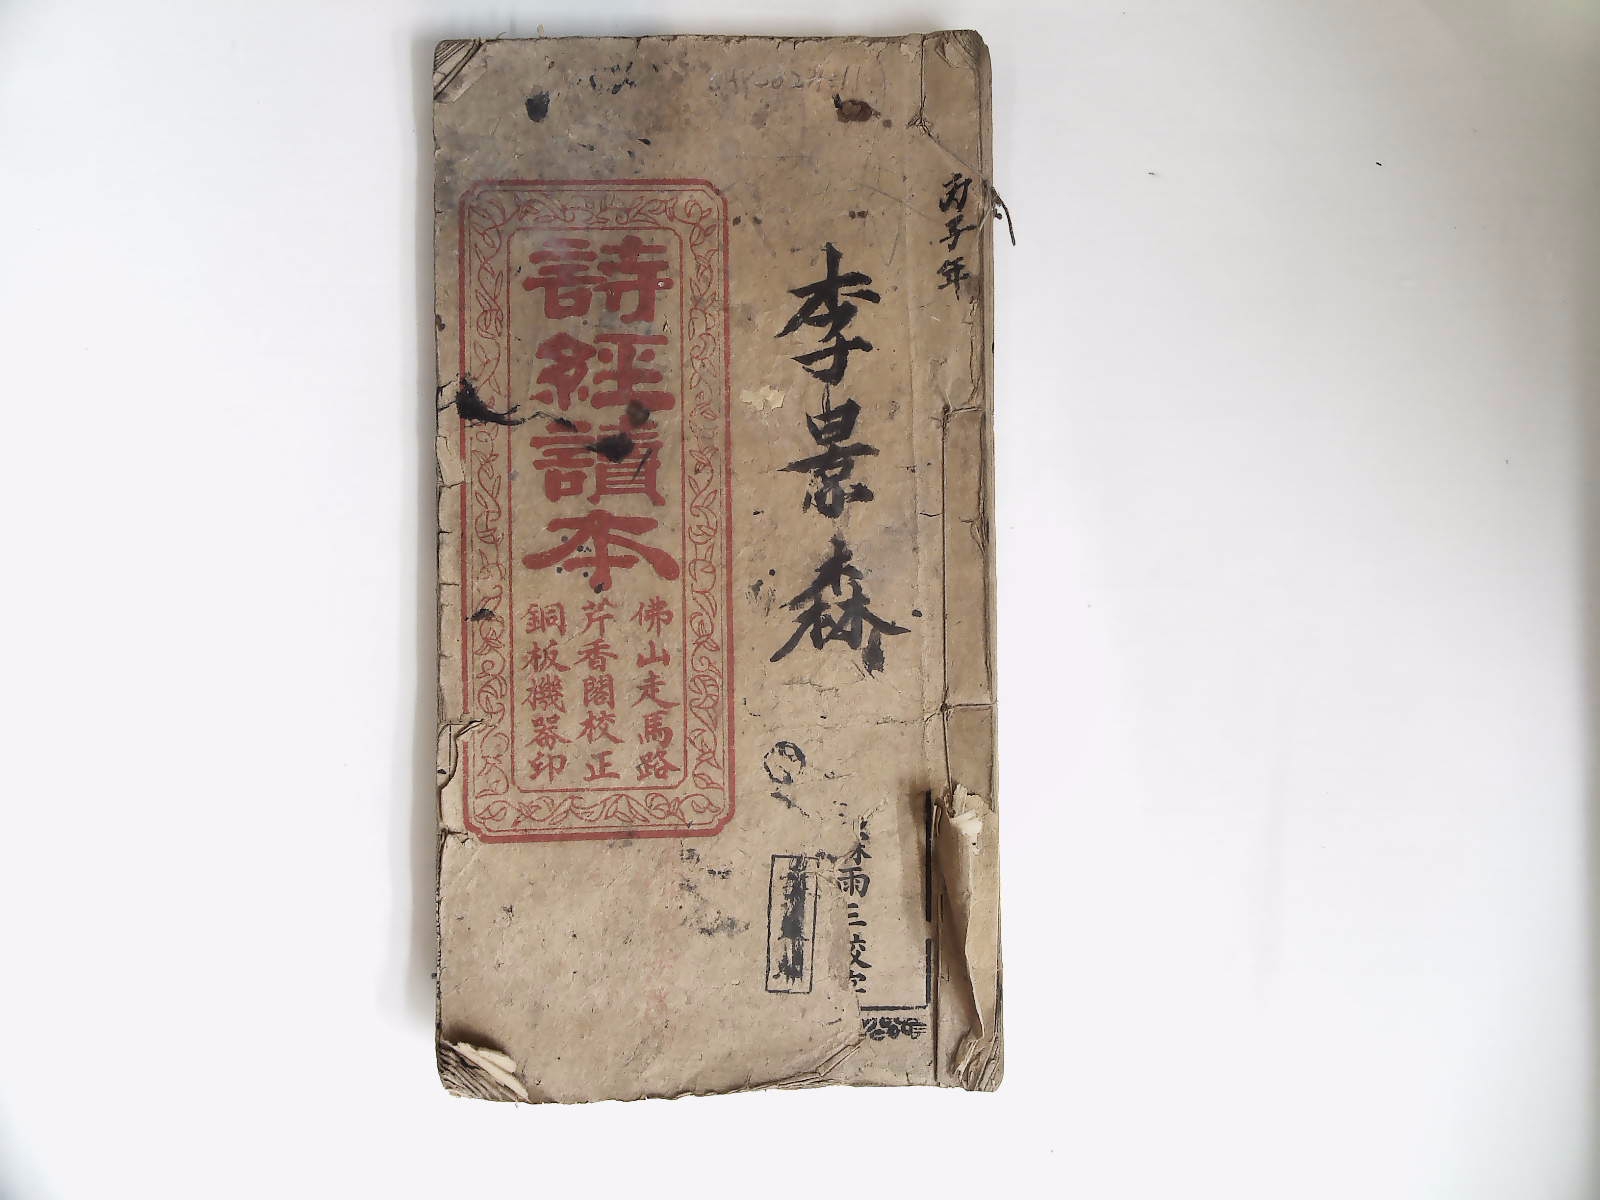 丙子年
李景森
雨三校定
詩經讀本
佛山走馬路
芹香閣校正
銅板機器印